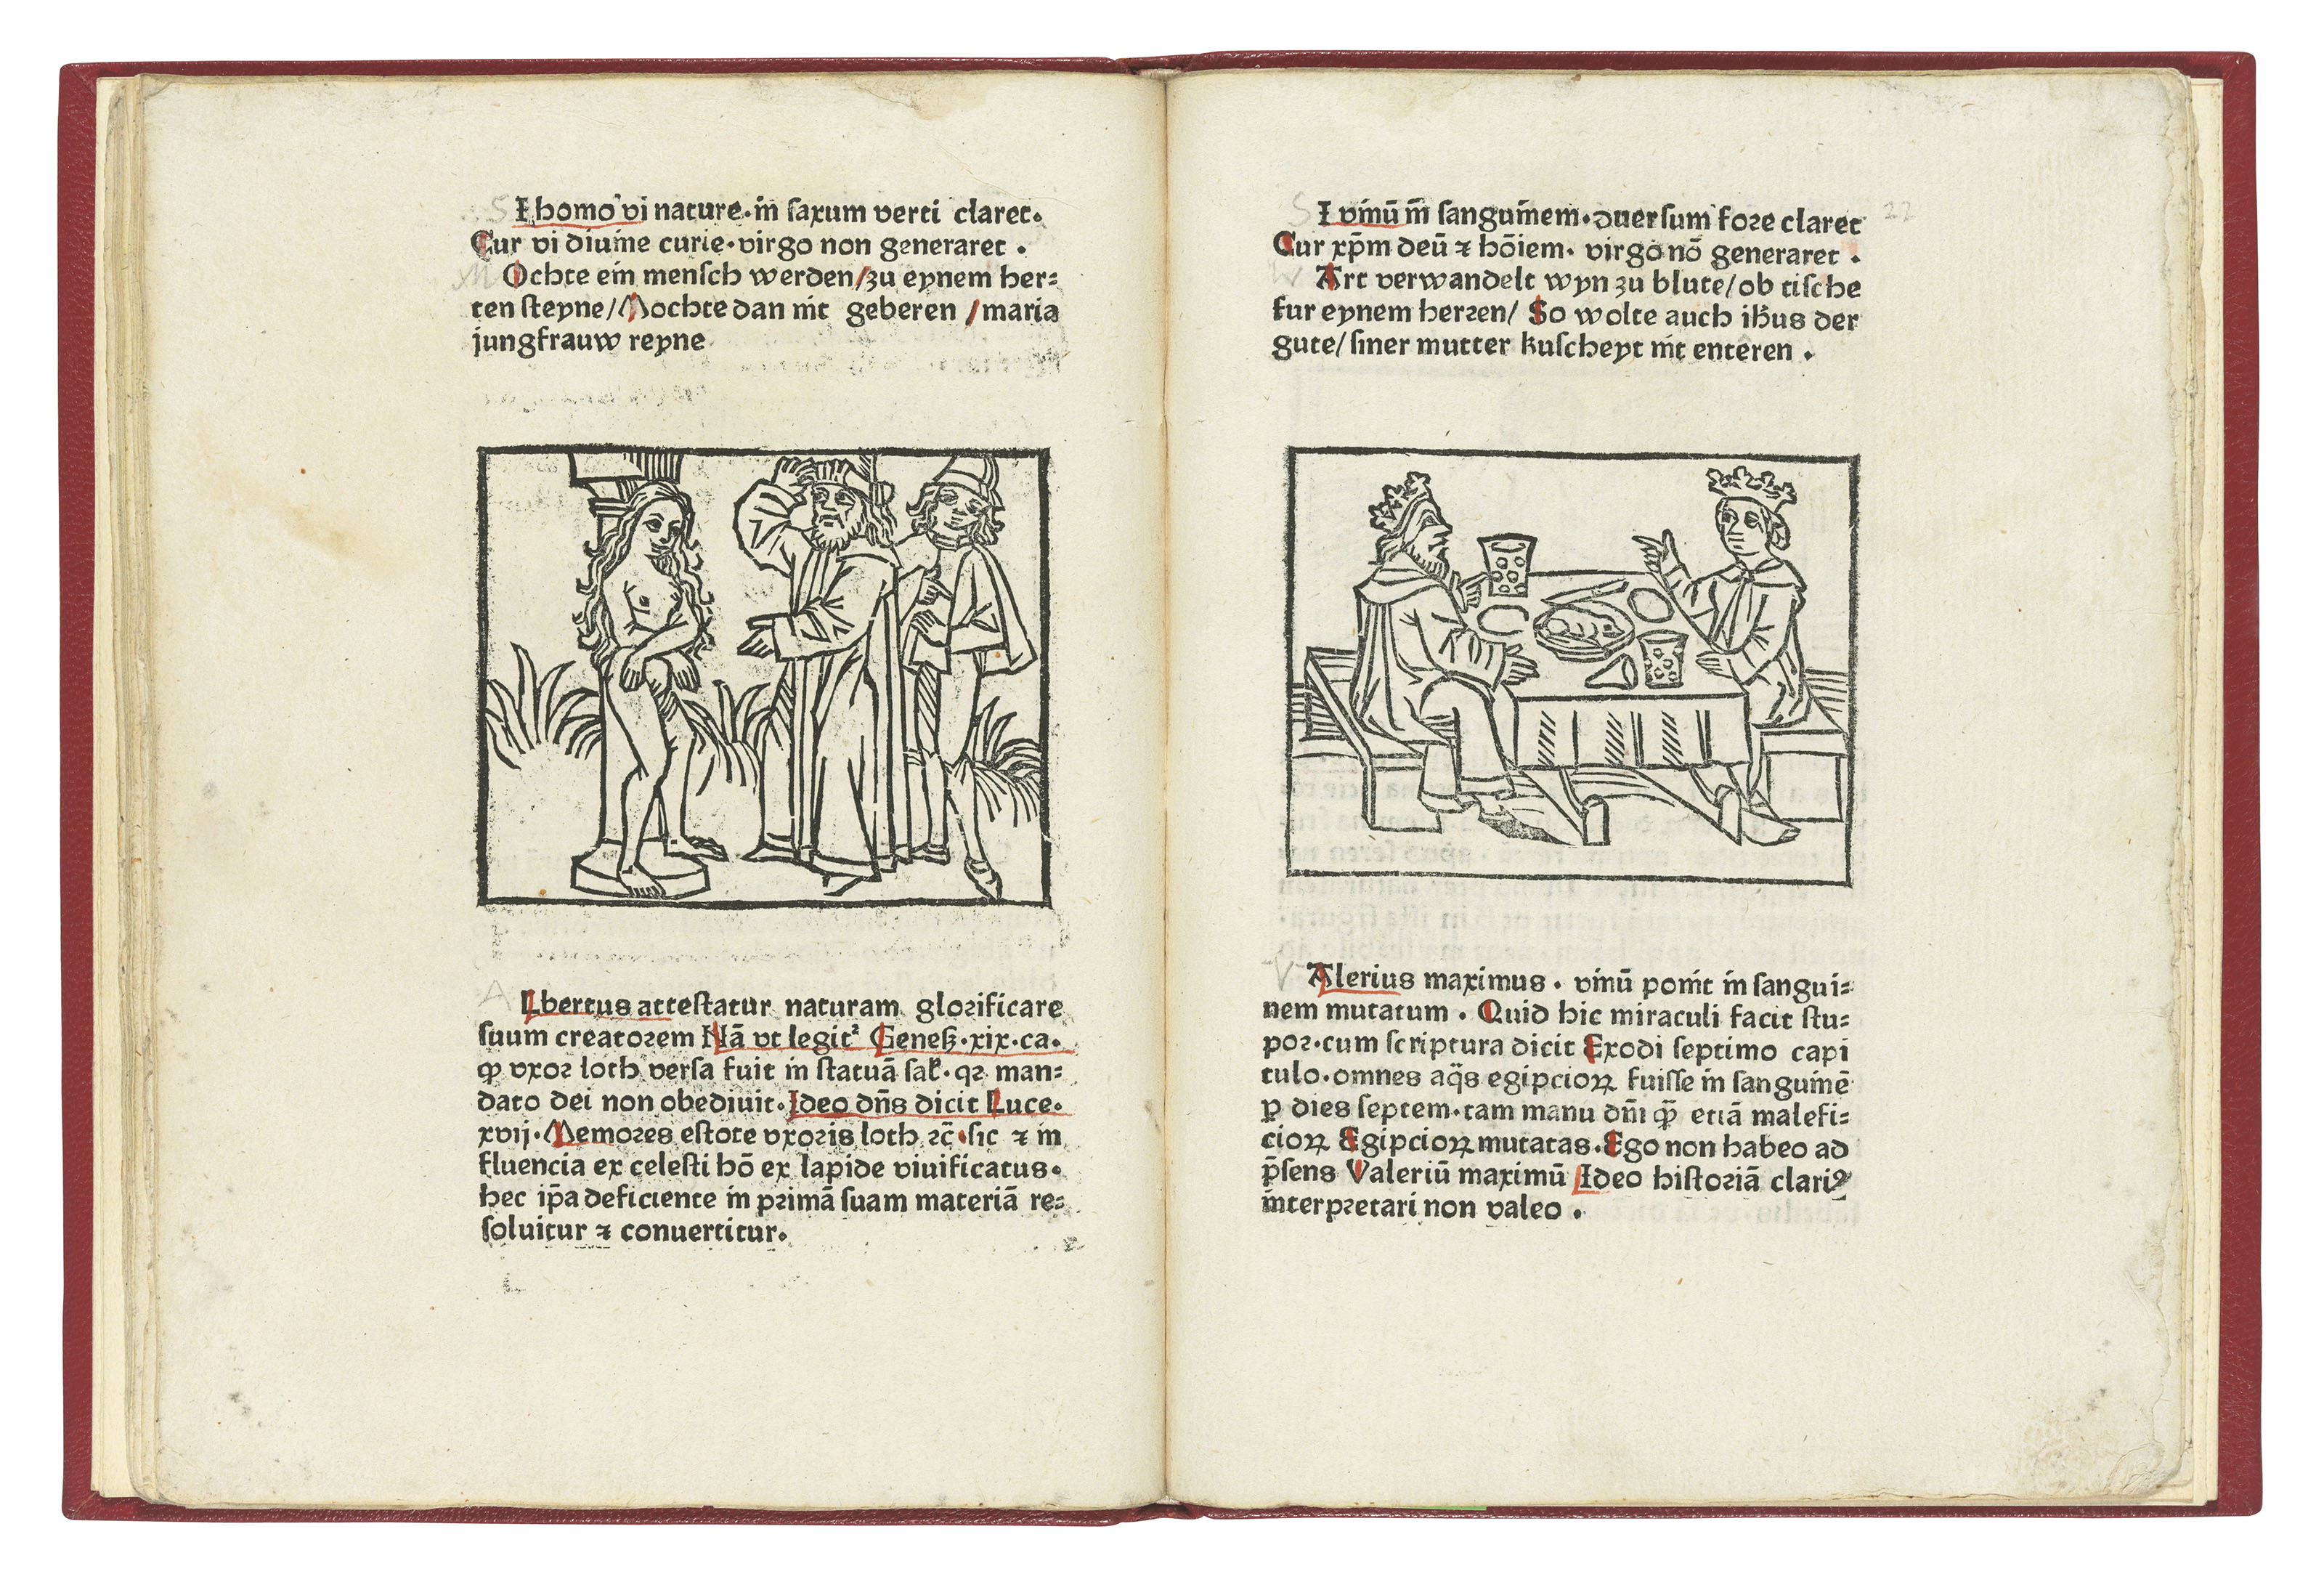 S I homo vi nature·in saxum verti claret·
Cur vi diuine curie·virgo non generaret·
M Ochte ein mensch werden/zu eynem her=
ten steyne/Mochte dan nit geberen/maria
jungfrauw reyne
A Lbertus attestatur naturam glorificare
suum creatorem Nā vt legit᷑ Geneß·xix·ca·
ꝙ vxor loth versa fuit in statuā sal̛·qꝛ man=
dato dei non obediuit·Ideo dn̄s dicit Luce·
xvij·Memores estote vxoris loth ꝛc̄·sic ⁊ in
fluencia ex celesti hō ex lapide viuificatus·
hec ip̄a deficiente in primā suam materiā re=
soluitur ⁊ conuertitur·
S I vinū in̄ sanguinem·duersum fore claret 22
Cur xp̄m deū ⁊ hōiem·virgo nō generaret·
W Art verwandelt wyn zu blute/ob tische
fur eynem herren/So wolte auch ih̄us der
gute/siner mutter kuscheyt nit enteren·
V Alerius maximus·vinū ponit in sangui=
nem mutatum·Quid hic miraculi facit stu=
por·cum scriptura dicit Exodi septimo capi
tulo·omnes aq̄s egipcioꝝ fuisse in sanguinē
ꝑ dies septem·tam manu dn̄i ꝙ̄ etiā malefi=
cioꝝ Egipcioꝝ mutatas·Ego non habeo ad
p̄sens Valeriū maximū Ideo historiā clariꝰ
interpretari non valeo·